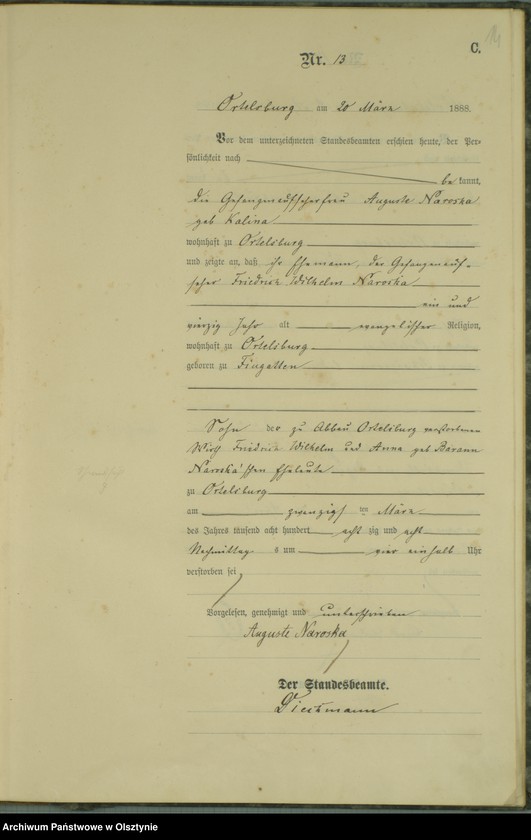 C.
Nr. 13
Ortelsburg am 20 März 1888.
Vor dem unterzeichneten Standesbeamten erschien heute, der Per-
sönlichkeit nach
be kannt,
die Gefangenaufseherfrau Auguste Naroska
geb Kalina
wohnhaft zu Ortelsburg
und zeigte an, daß ihr Ehemann, der Gefangenauf-
seher Friedrich Wilhelm Naroska
ein und
vierzig Jahr alt evangelischer Religion,
wohnhaft zu Ortelsburg
geboren zu Fingatten
Sohn der zu Abbau Ortelsburg verstorbenen
Wirth Friedrich Wilhelm und Anna geb Barann
Naroska'schen Eheleute
zu Ortelsburg
am zwanzigsten März
des Jahres tausend acht hundert acht zig und acht
Nachmittags um vier einhalb Uhr
verstorben sei
Vorgelesen, genehmigt und unterschrieben
Auguste Naroska
Der Standesbeamte.
Archiwum Państwowe w Olsztynie